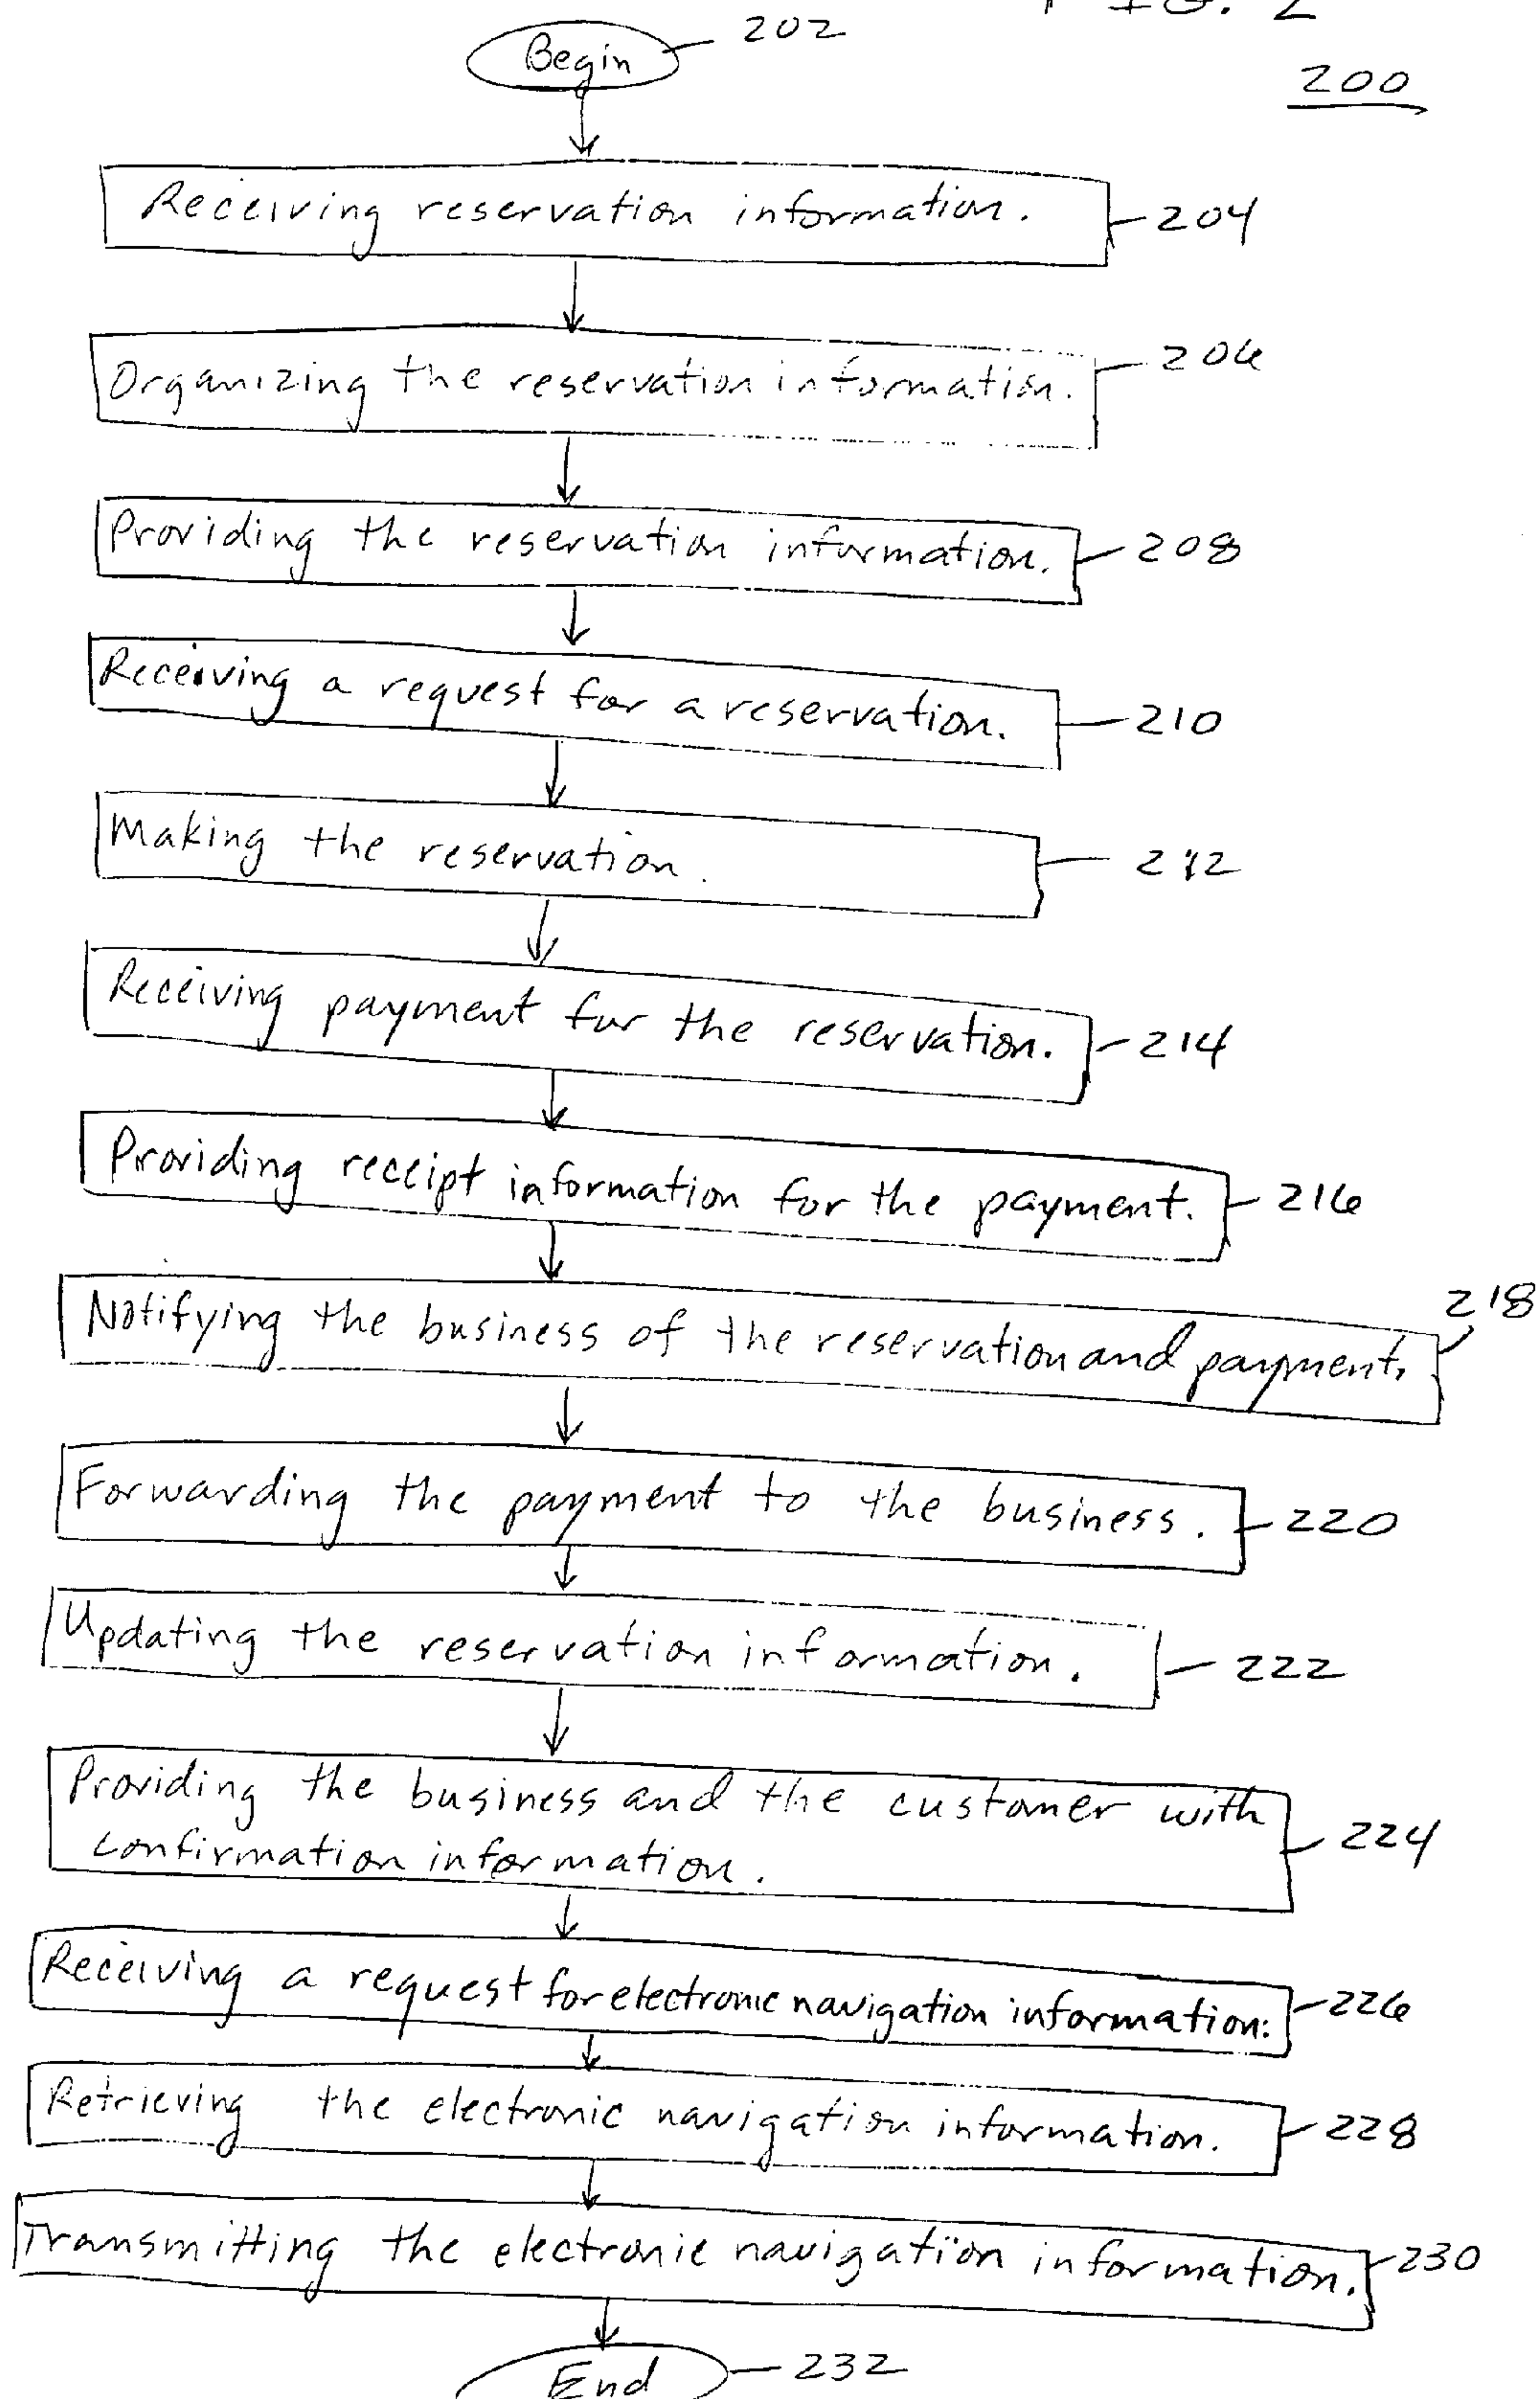 FIG. 2
Begin 202
200
Receiving reservation information. 204
Organizing the reservation information. 206
Providing the reservation information. 208
Receiving a request for a reservation. 210
Making the reservation. 212
Receiving payment for the reservation. 214
Providing receipt information for the payment. 216
218
Notifying the business of the reservation and payment.
Forwarding the payment to the business. 220
Updating the reservation information. 222
Providing the business and the customer with
confirmation information. 224
Receiving a request for electronic navigation information. 226
Retrieving the electronic navigation information. 228
Transmitting the electronic navigation information. 230
End 232